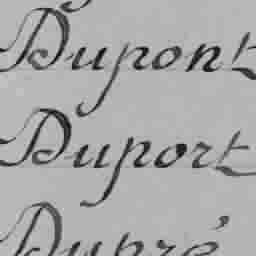 Dupont
Duport
Dupré